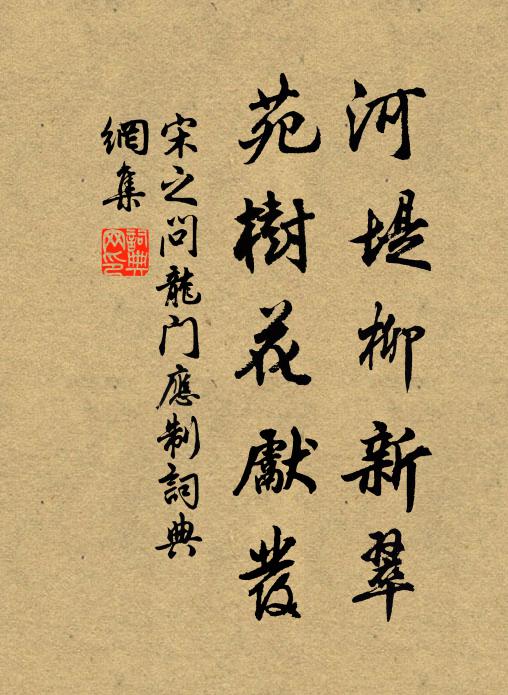 河堤柳新翠
苑樹花獻發
宋之问龍门應制詞典
網集
詞典
网印